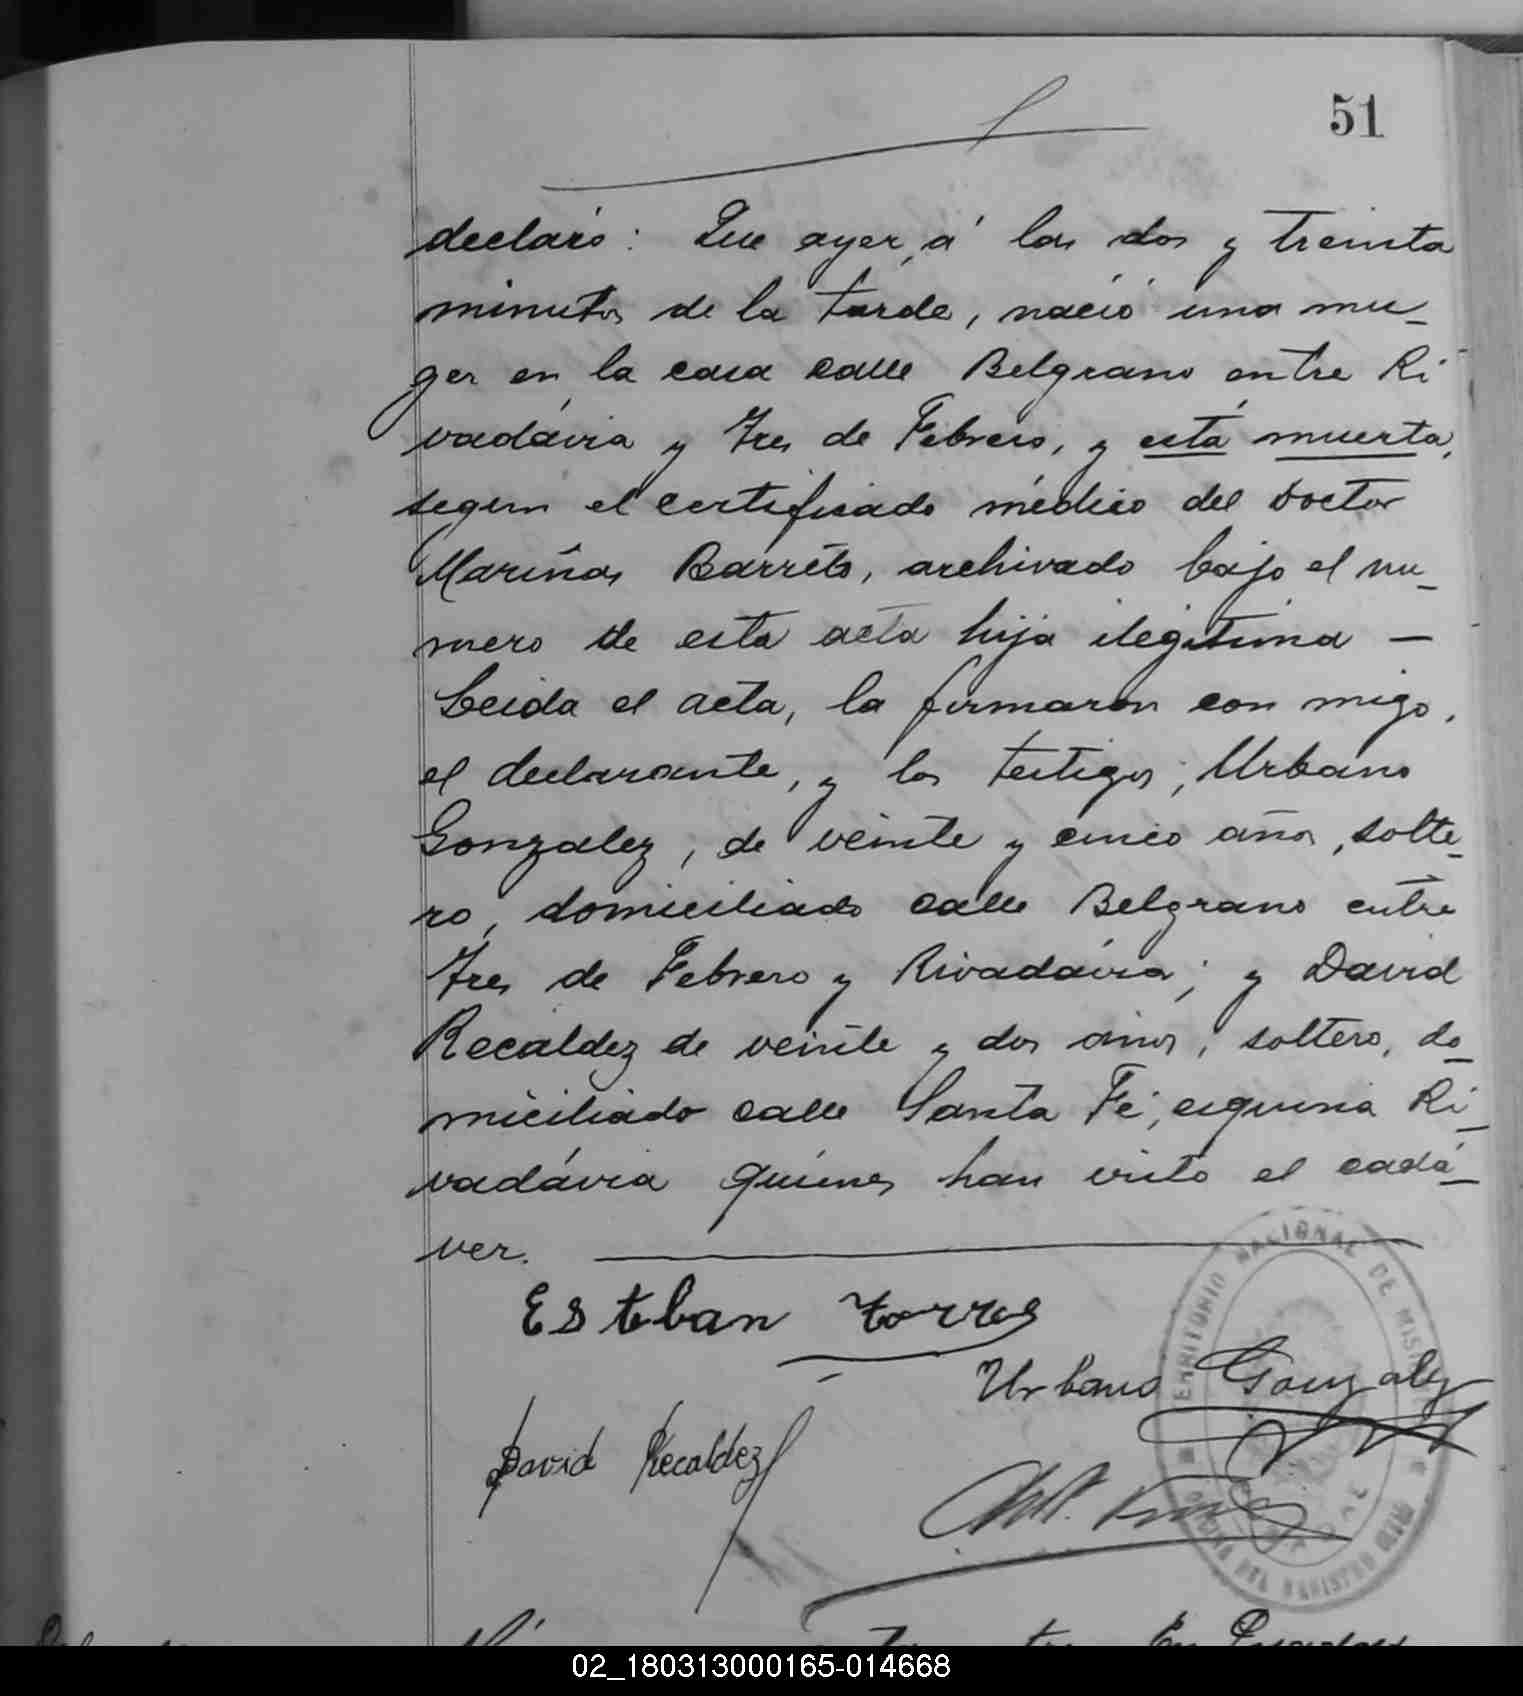 51
declaró: Que ayer, á las dos y treinta
minutos de la tarde, nació una mu-
ger en la casa calle Belgrano entre Ri-
vadávia y Tres de Febrero, y está muerta,
segun el certificado médico del Doctor
Mariños Barréto, archivado bajo el nu-
mero de esta acta hija ilegítima —
Leida el acta, la firmaron con migo,
el declarante, y los testigos; Urbano
Gonzalez, de veinte y cinco años, solte-
ro, domiciliado calle Belgrano entre
Tres de Febrero y Rivadávia; y David
Recaldez de veinte y dos años, soltero, do-
miciliado calle Santa Fé, esquina Ri-
vadávia quiénes han visto el cadá-
ver.
Esteban Torres
Urbano Gonzalez
David Recaldez
TERRITORIO NACIONAL DE MISIONES
OFICINA DEL REGISTRO CIVIL
02_180313000165-014668